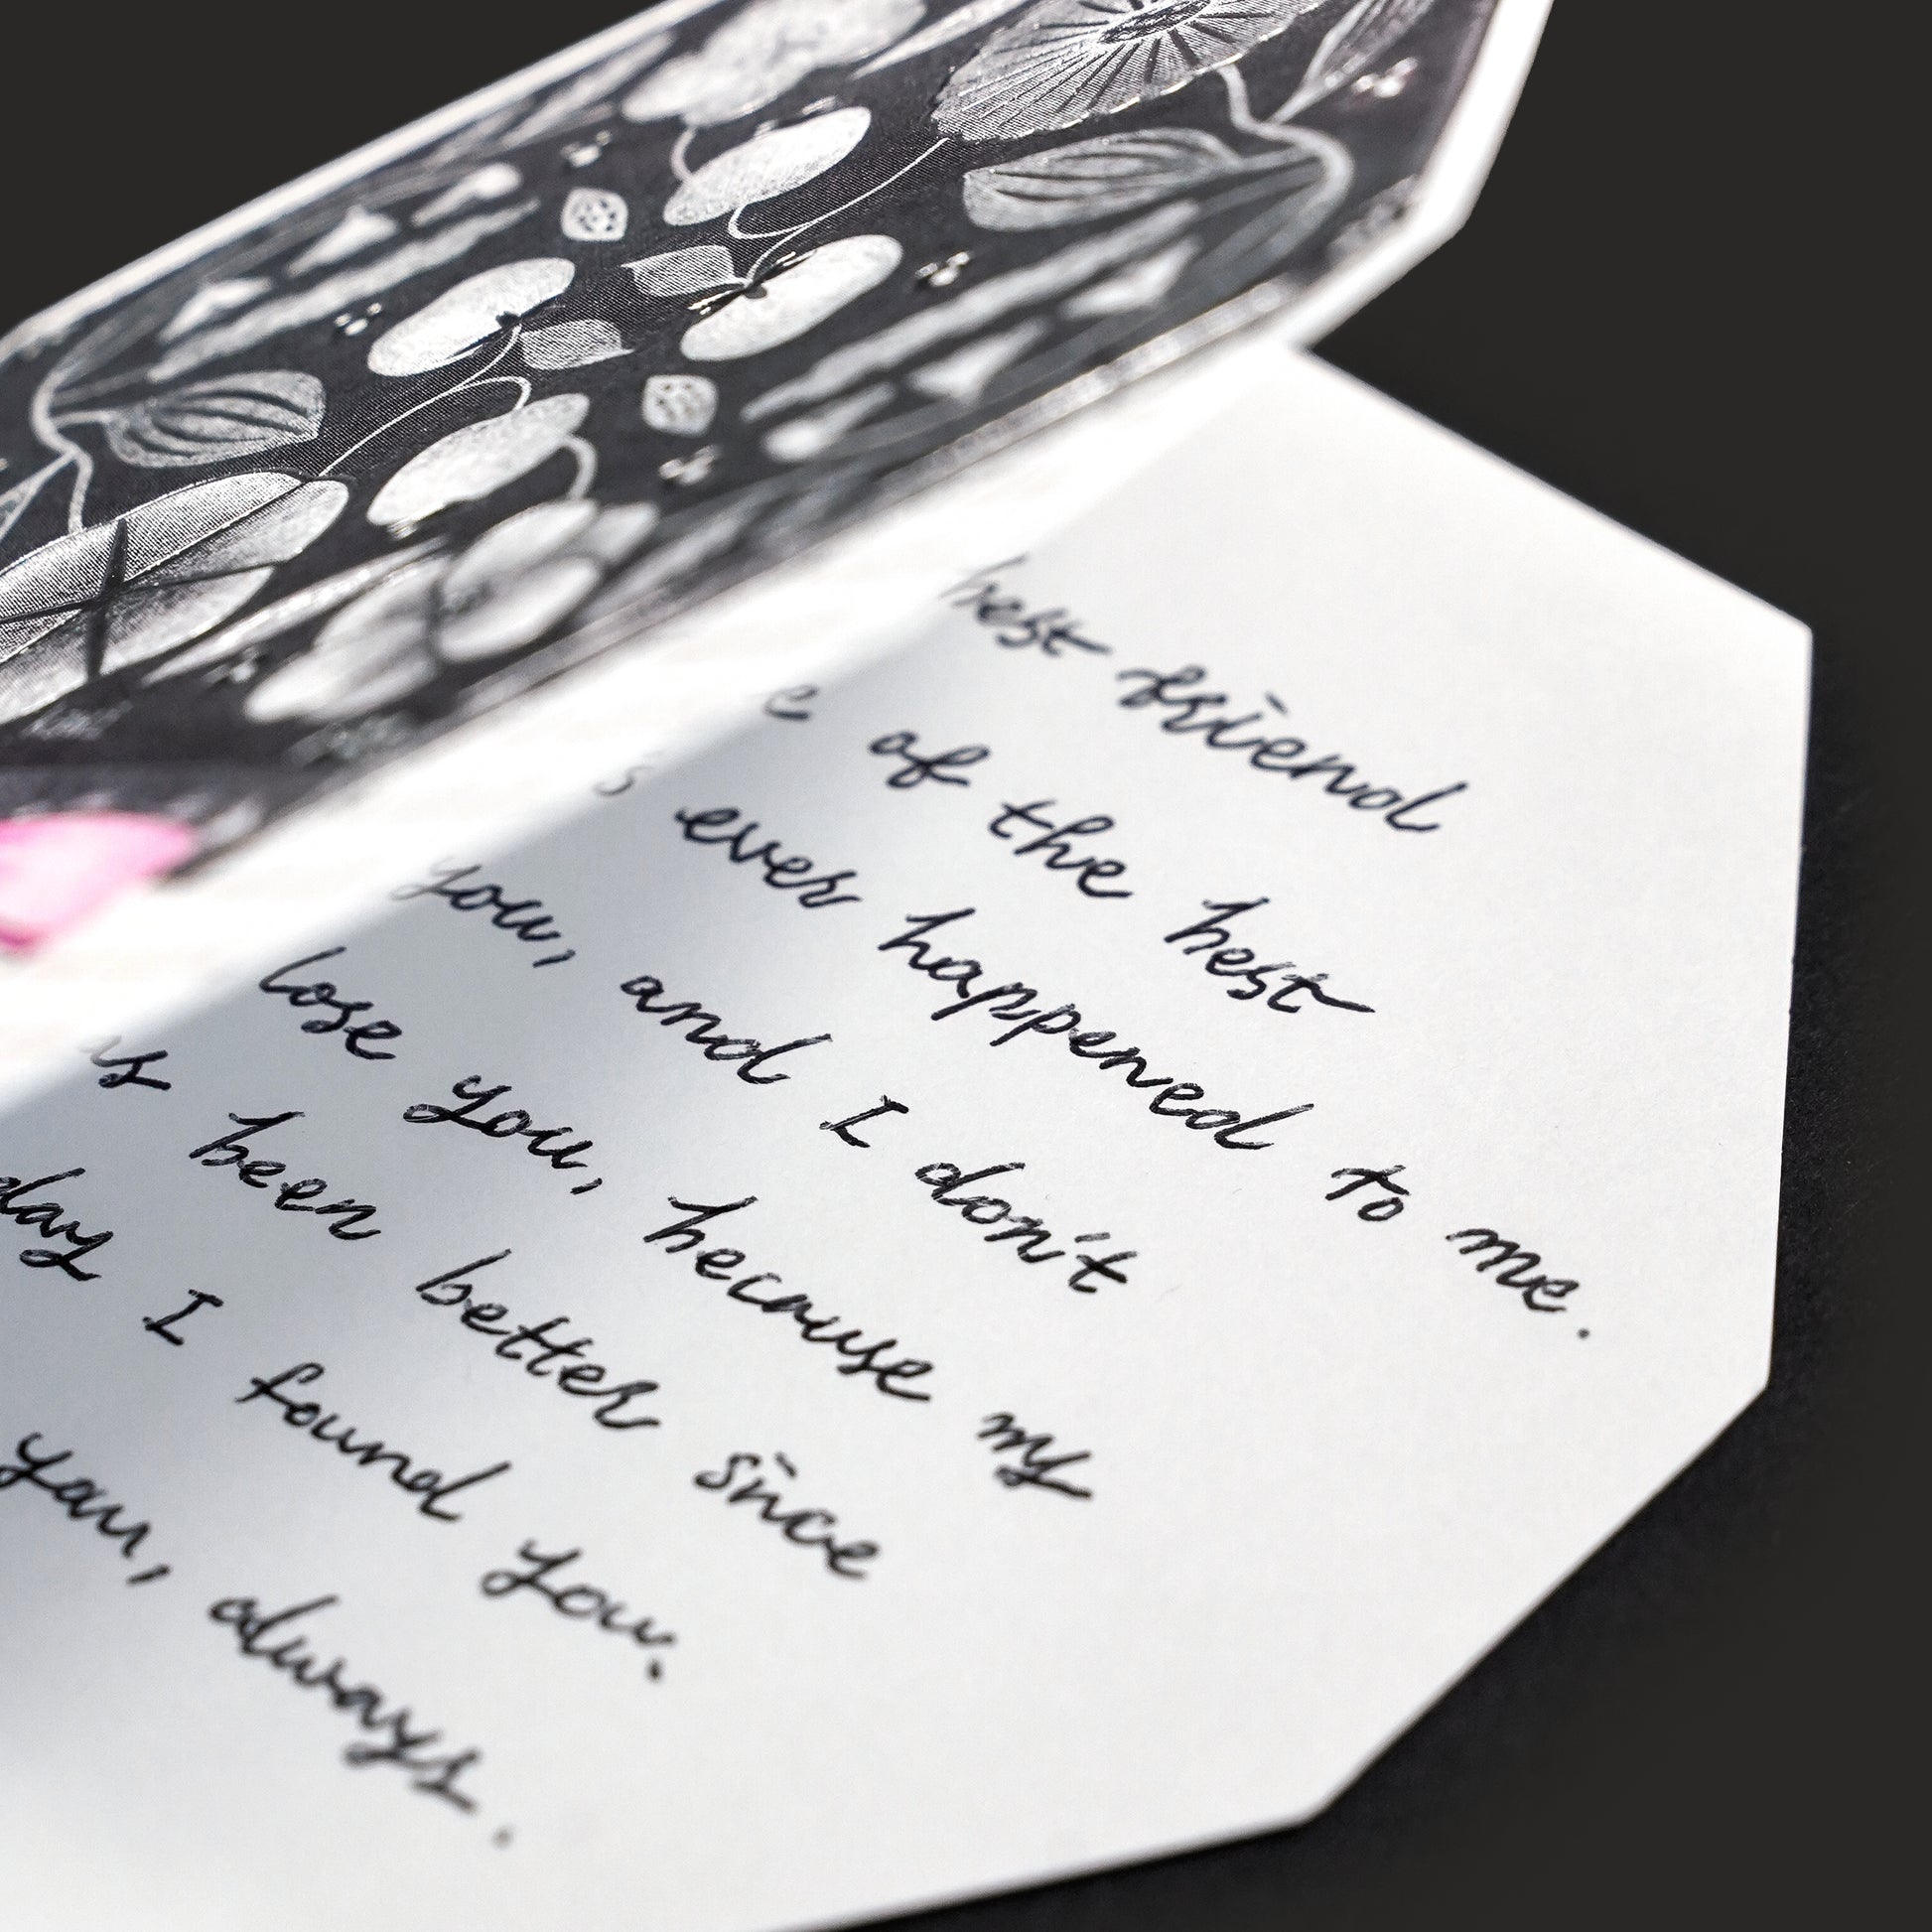 best friend
of the best
ever happened to me.
you, and I don't
lose you, because my
been better since
day I found you.
you, always.